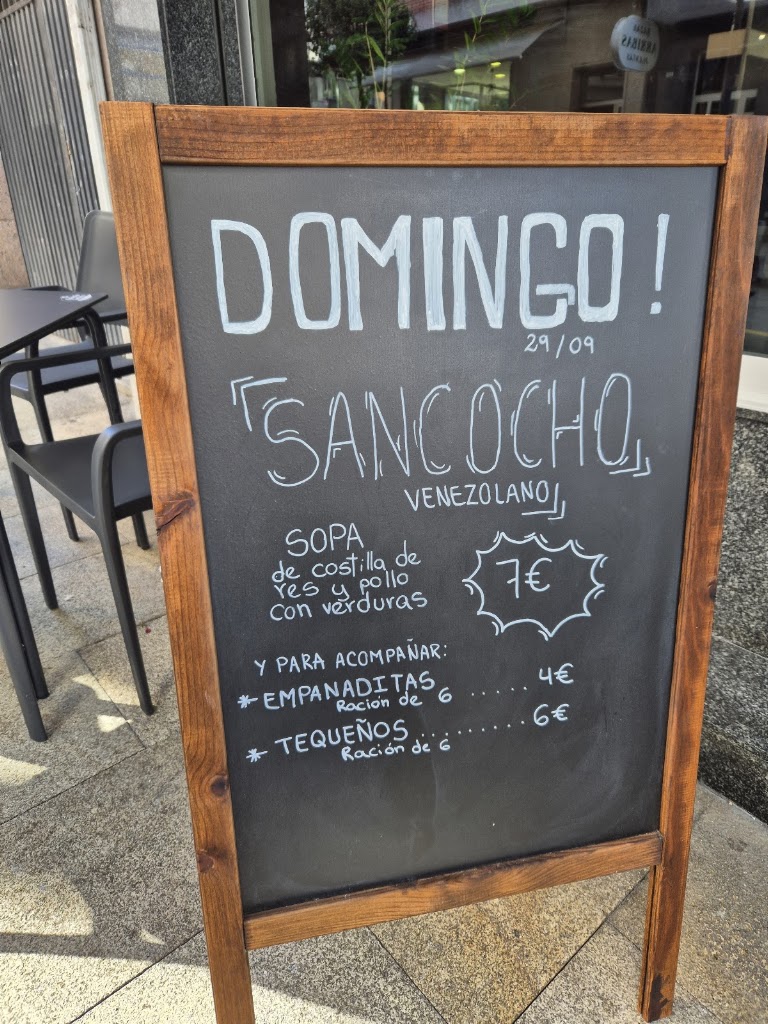 DOMINGO!
29/09
SANCOCHO
VENEZOLANO
SOPA
de costilla de
res y pollo
con verduras
7€
Y PARA ACOMPAÑAR:
* EMPANADITAS ...... 4€
Ración de 6
* TEQUEÑOS .......... 6€
Ración de 6